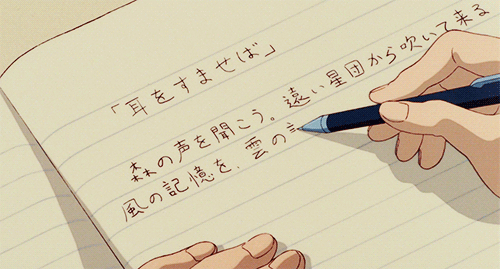 「耳をすませば」
森の声を聞こう。遠い星団から吹いて来る
風の記憶を、雲の